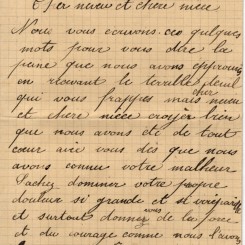 Cher neveu et chere niece
Nous vous ecuvons ces quelques
mots pour vous dire la
peine que nous avons epprouvée
en recevant le terrible deuil
qui vous frappes mais cher neveu
et chère nièce croyer bien
que nous avons eté de tout
cœur avec vous dès que nous
avons connu votre malheur
Sachez dominer votre propre
douleur si grande et si
et surtout donnez vous de la force
et du courage comme nous l'avons